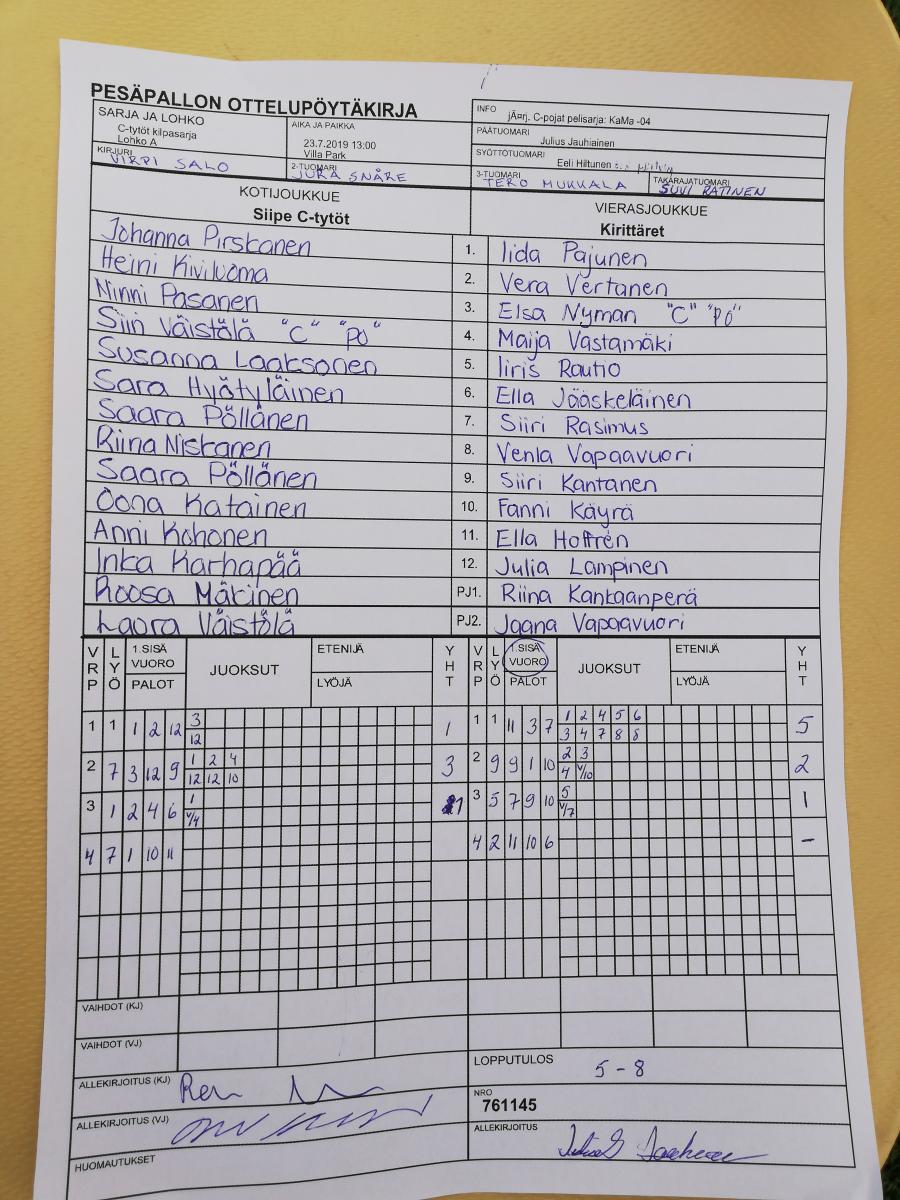 PESÄPALLON OTTELUPÖYTÄKIRJA
SARJA JA LOHKO
C-tytöt kilpasarja
Lohko A
AIKA JA PAIKKA
23.7.2019 13:00
Villa Park
INFO
jÃ¤rj. C-pojat pelisarja: KaMa -04
PÄÄTUOMARI
Julius Jauhiainen
SYÖTTÖTUOMARI
Eeli Hiltunen
KIRJURI
VIRPI SALO
2-TUOMARI
JUKA SNÅRE
3-TUOMARI
TERO MUKKALA
TAKARAJATUOMARI
SUVI RATINEN
KOTIJOUKKUE
Siipe C-tytöt
VIERASJOUKKUE
Kirittäret
Johanna Pirskanen 1. Iida Pajunen
Heini Kiviluoma 2. Vera Vertanen
Minni Pasanen 3. Elsa Nyman "C" "PO"
Siiri Väistölä "C" "PO" 4. Maija Vastamäki
Susanna Laaksonen 5. Iiris Rautio
Sara Hyötyläinen 6. Ella Jääskeläinen
Saara Pöllänen 7. Siiri Rasimus
Riina Niskanen 8. Venla Vapaavuori
Saara Pöllänen 9. Siiri Kantanen
Oona Katainen 10. Fanni Käyrä
Anni Kohonen 11. Ella Hoffrén
Inka Karhapää 12. Julia Lampinen
Roosa Mäkinen PJ1. Riina Kankaanperä
Laura Väistölä PJ2. Jaana Vapaavuori
VRP LYÖ 1.SISÄ VUORO PALOT JUOKSUT ETENIJÄ LYÖJÄ YHT VRP LYÖ 1.SISÄ VUORO PALOT JUOKSUT ETENIJÄ LYÖJÄ YHT
1 1 1 2 12 3 1 1 1 11 3 7 1 2 4 5 6 5
12 3 4 7 8 8
2 7 3 12 9 1 2 4 3 2 9 9 1 10 2 3 2
12 12 10 4 V/10
3 1 2 4 6 1 1 3 5 7 9 10 5 1
V/4 V/7
4 7 1 10 11 4 2 11 10 6 -
VAIHDOT (KJ)
VAIHDOT (VJ)
LOPPUTULOS
5 - 8
ALLEKIRJOITUS (KJ)
NRO
761145
ALLEKIRJOITUS (VJ)
ALLEKIRJOITUS
HUOMAUTUKSET